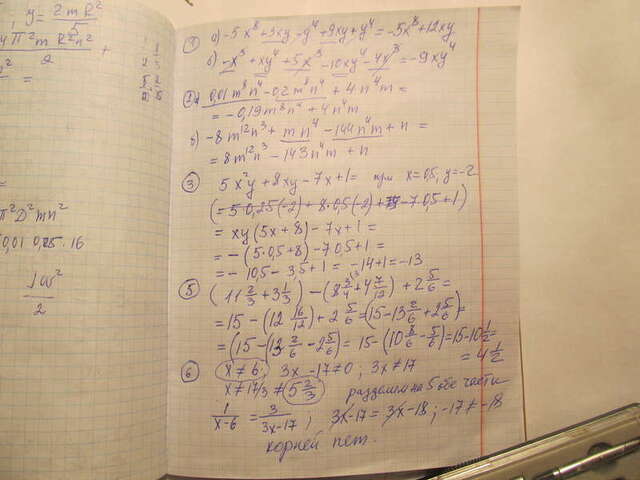 y = 2mR²/5
4π²m R²n²
2
π²D²mn²
0,01 0,025 · 16
Jω²
2
① а) -5x⁸ + 3xy - y⁴ + 9xy + y⁴ = -5x⁸ + 12xy
б) -x³ + xy⁴ + 5x³ - 10xy⁴ - 4x³ = -9xy⁴
0,01m⁸n⁴ - 0,2m⁸n⁴ + 4n⁴m =
= -0,19m⁸n⁴ + 4n⁴m
б) -8m¹²n³ + mn⁴ - 144n⁴m + n =
= 8m¹²n³ - 143n⁴m + n
③ 5x²y + 8xy - 7x + 1 = при x=0,5, y=-2
(= 5·0,25(-2) + 8·0,5(-2) + -7·0,5+1)
= xy(5x+8) - 7x+1 =
= -(5·0,5+8) - 7·0,5+1 =
= -10,5 - 3,5+1 = -14+1 = -13
⑤ (11 2/3 + 3 1/3) - (8 3/4 + 4 7/12) + 2 5/6 =
= 15 - (12 16/12) + 2 5/6 = (15 - 13 2/6 + 2 5/6) =
= (15 - (13 2/6 - 2 5/6) = 15 - (10 8/6 - 5/6) = 15 - 10 1/2 =
= 4 1/2
⑥ x≠6; 3x-17≠0; 3x≠17
x≠17/3 ≠ 5 2/3
разделим на 5 обе части
1/(x-6) = 3/(3x-17); 3x-17=3x-18; -17≠-18
корней нет.